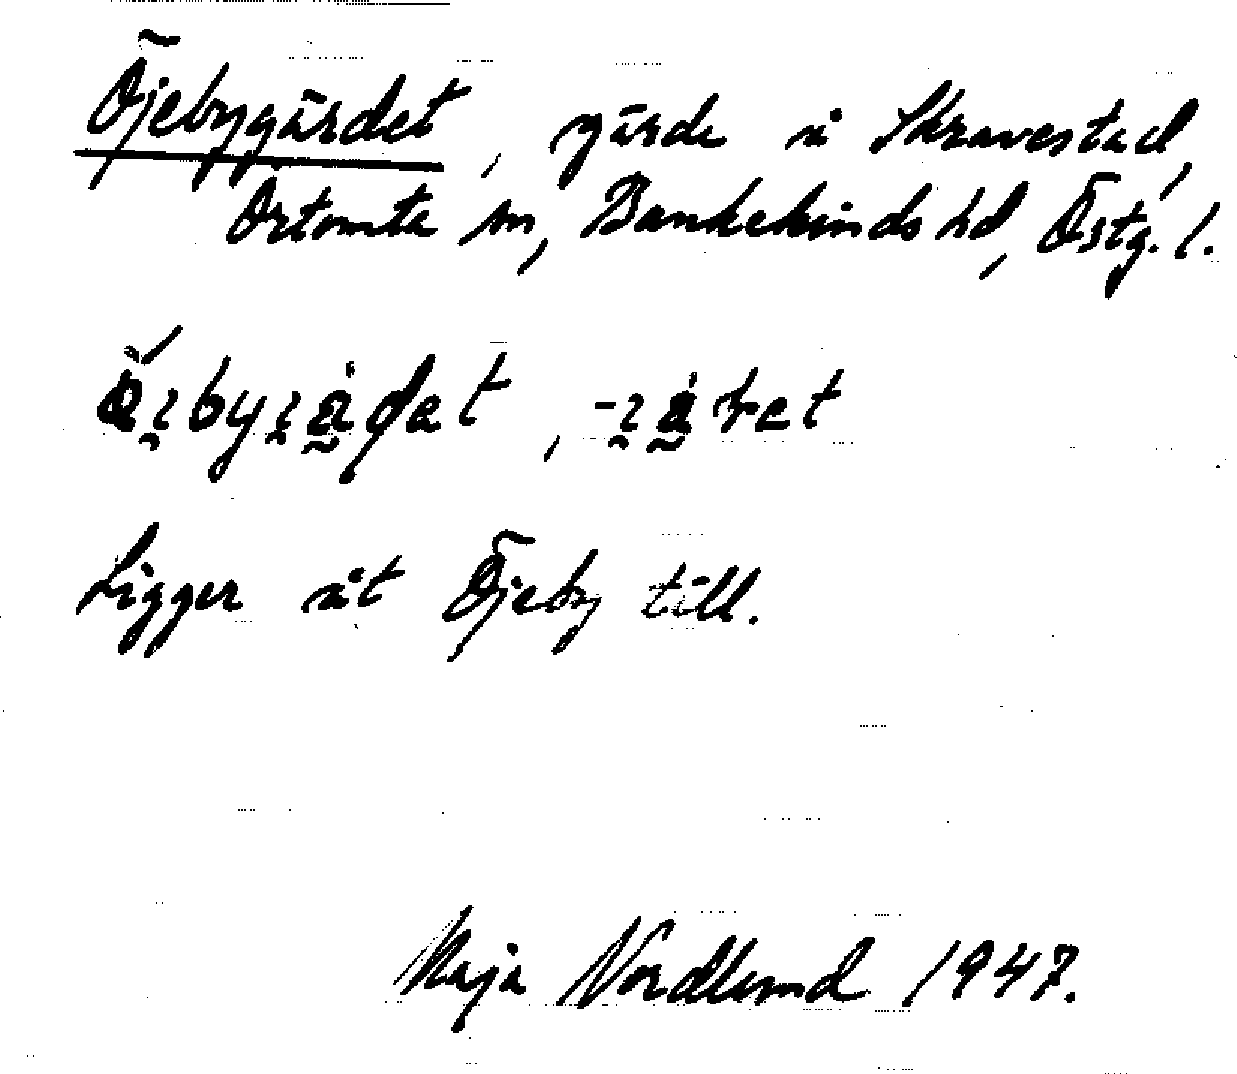 Öjebygärdet, gärde å Skravestad,
Örtomta sn, Bankekinds hd, Östg. l.
Ligger åt Öjeby till.
Maja Nordlund 1947.